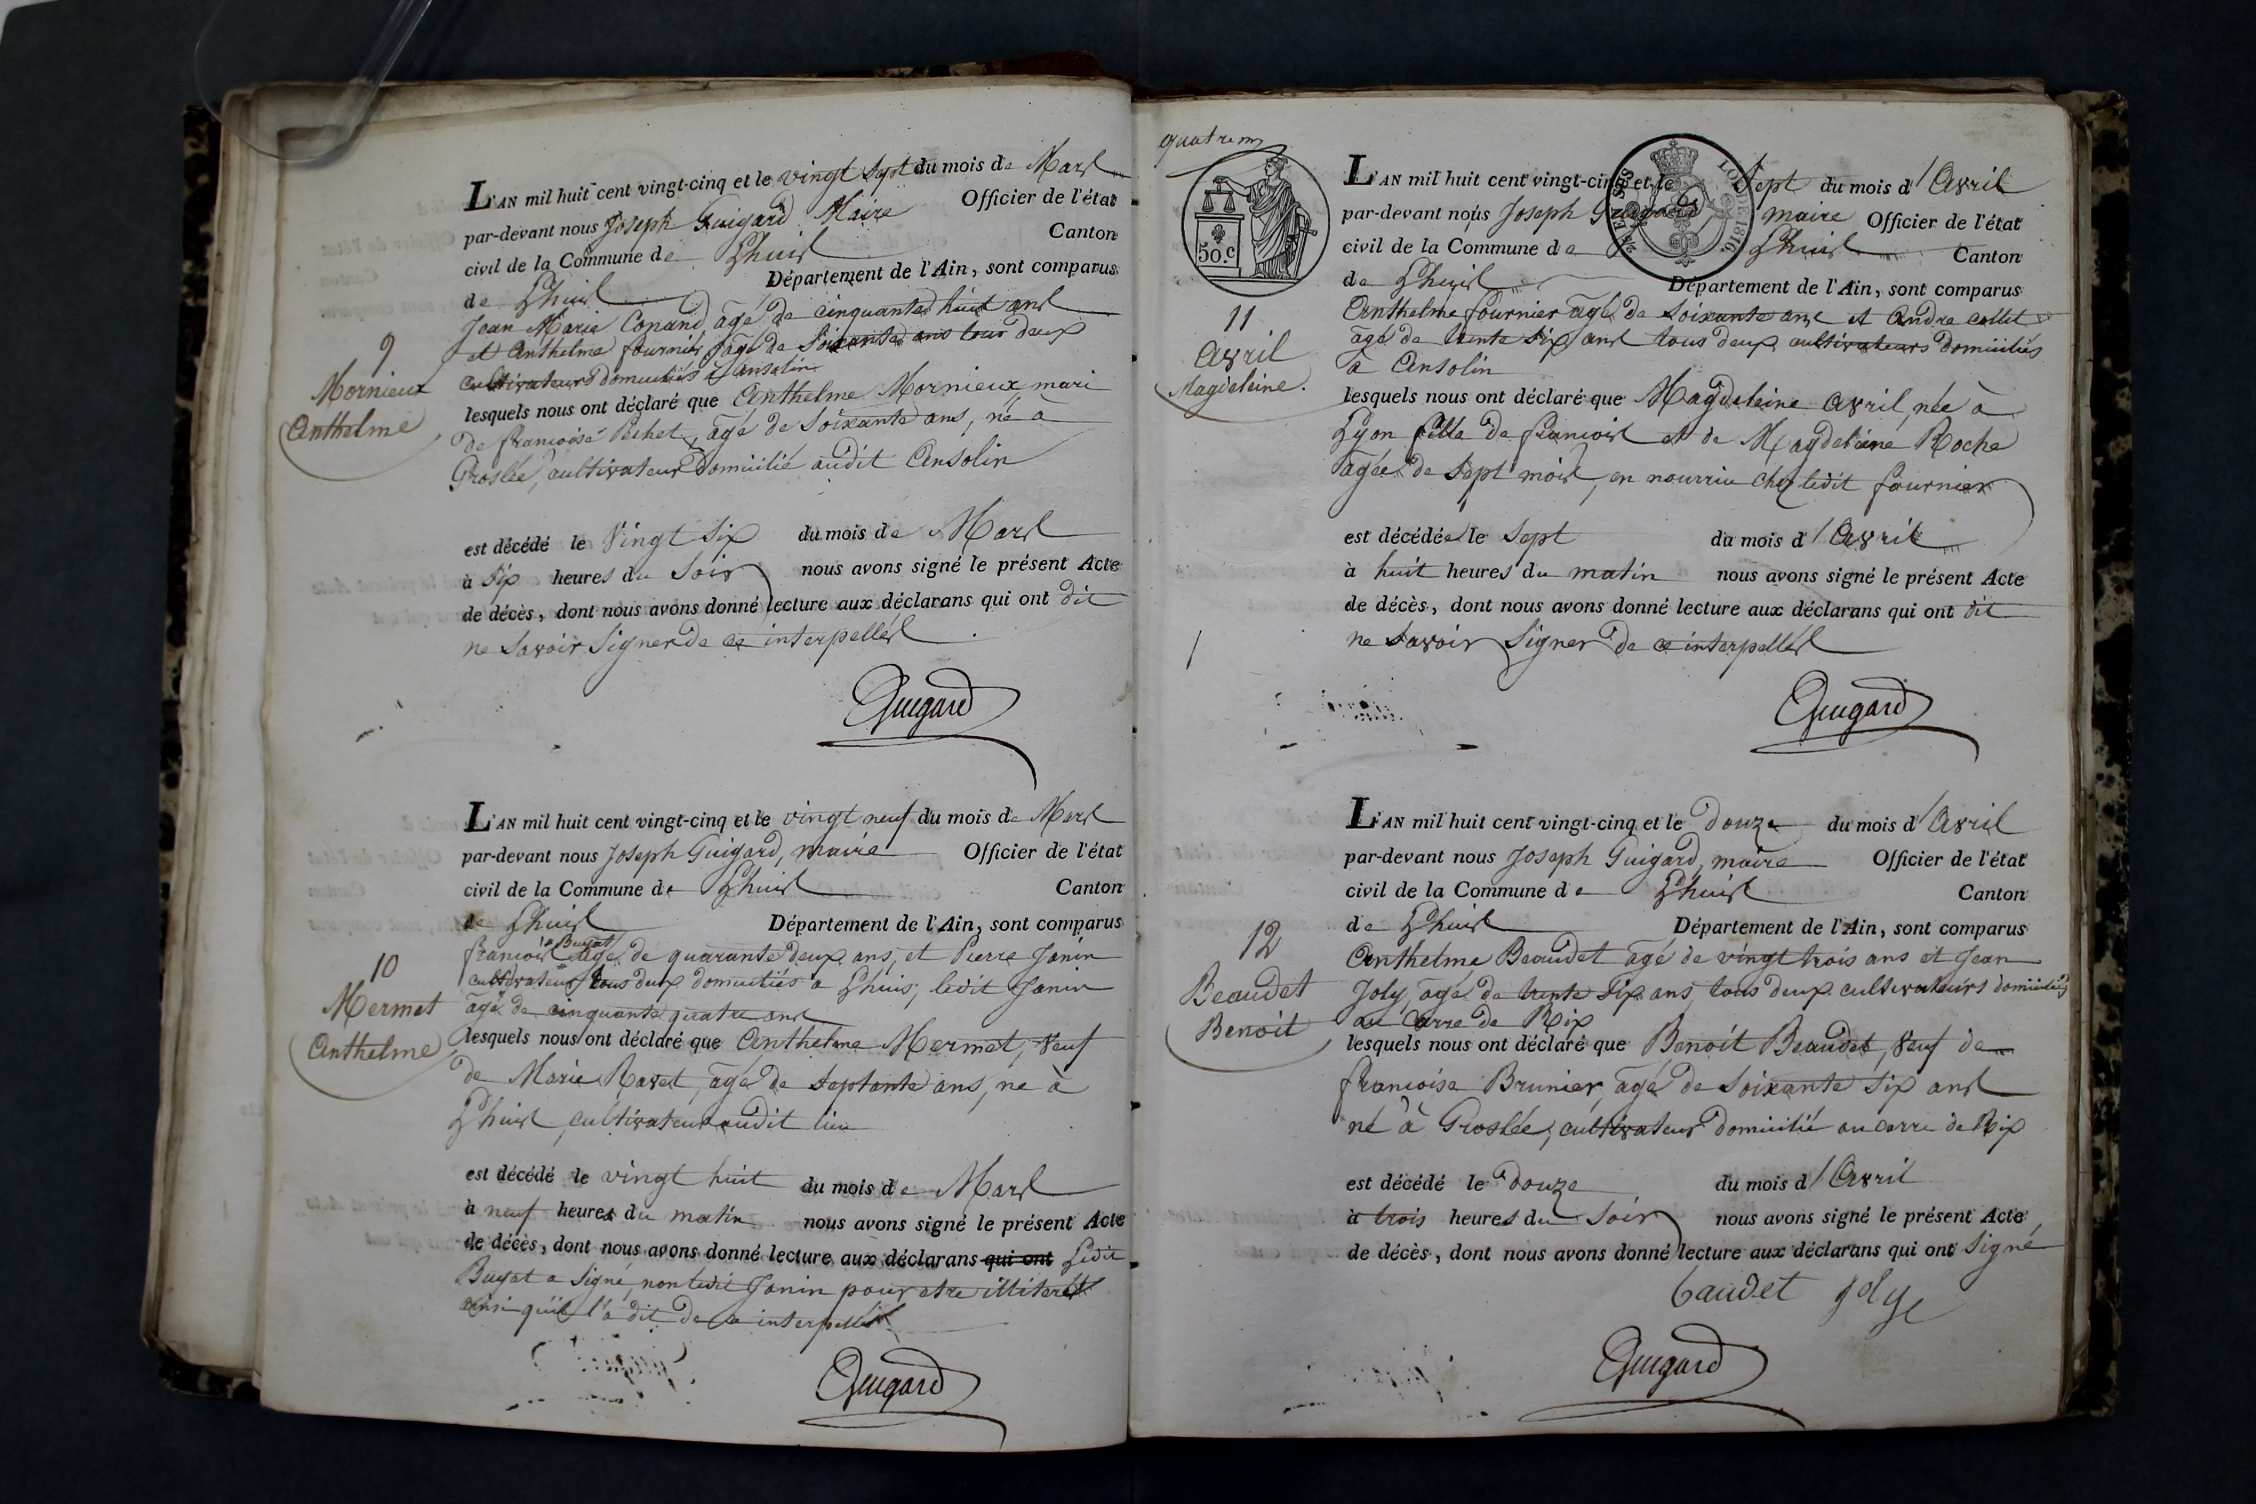 L'AN mil huit cent vingt-cinq et le vingt sept du mois de Mars
par-devant nous Joseph Guigard Maire Officier de l'état
civil de la Commune de Lhuis Canton
de Lhuis Département de l'Ain, sont comparus
Jean Marie Conand, agé de cinquante huit ans
et Anthelme fournier, agé de Soixante ans tous deux
cultivateurs domiciliés à ansolin
9
Mornieux
Anthelme
lesquels nous ont déclaré que Anthelme Mornieux mari
de francoise Pichet, agé de Soixante ans, né à
Groslée, cultivateur domicilié audit Ansolin
est décédé le Vingt Six du mois de Mars
à Six heures du Soir nous avons signé le présent Acte
de décès, dont nous avons donné lecture aux déclarans qui ont dit
ne Savoir Signer de ce interpellés
Guigard
L'AN mil huit cent vingt-cinq et le vingt neuf du mois de Mars
par-devant nous Joseph Guigard, maire Officier de l'état
civil de la Commune de Lhuis Canton
de Lhuis Département de l'Ain, sont comparus
francois Buyat agé de quarante deux ans, et Pierre Janin
cultivateurs tous deux domiciliés à Lhuis, ledit Janin
agé de cinquante quatre ans
10
Mermet
Anthelme
lesquels nous ont déclaré que Anthelme Mermet, Veuf
de Marie Ravet, agé de Septante ans, né à
Lhuis, cultivateur audit lieu
est décédé le vingt huit du mois de Mars
à neuf heures du matin nous avons signé le présent Acte
de décès, dont nous avons donné lecture aux déclarans qui ont Ledit
Buyat a Signé, non ledit Janin pour etre illiteré
ainsi qu'il l'a dit de ce interpellé
Guigard
50.c
EN SUS
LOI DE 1816.
L'AN mil huit cent vingt-cinq et le Sept du mois d'Avril
par-devant nous Joseph Guigard maire Officier de l'état
civil de la Commune de Lhuis Canton
de Lhuis Département de l'Ain, sont comparus
Anthelme fournier agé de Soixante ans et Andre collet
agé de trente Six ans tous deux cultivateurs domiciliés
à Ansolin
11
Avril
Magdeleine.
lesquels nous ont déclaré que Magdeleine Avril, née à
Lyon fille de francois et de Magdeleine Roche
agée de Sept mois, en nourrice chez ledit fournier
est décédée le Sept du mois d'Avril
à huit heures du matin nous avons signé le présent Acte
de décès, dont nous avons donné lecture aux déclarans qui ont dit
ne Savoir Signer de ce interpellés
Guigard
L'AN mil huit cent vingt-cinq et le douze du mois d'Avril
par-devant nous Joseph Guigard, maire Officier de l'état
civil de la Commune de Lhuis Canton
de Lhuis Département de l'Ain, sont comparus
Anthelme Beaudet agé de vingt trois ans et Jean
Joly, agé de trente Six ans, tous deux cultivateurs domiciliés
au Carre de Rix
12
Beaudet
Benoit
lesquels nous ont déclaré que Benoit Beaudet, Veuf de
francoise Brunier, agé de Soixante Six ans
né à Groslée, cultivateur domicilié au carre de Rix
est décédé le douze du mois d'Avril
à trois heures du Soir nous avons signé le présent Acte
de décès, dont nous avons donné lecture aux déclarans qui ont Signé
baudet Jolye
Guigard